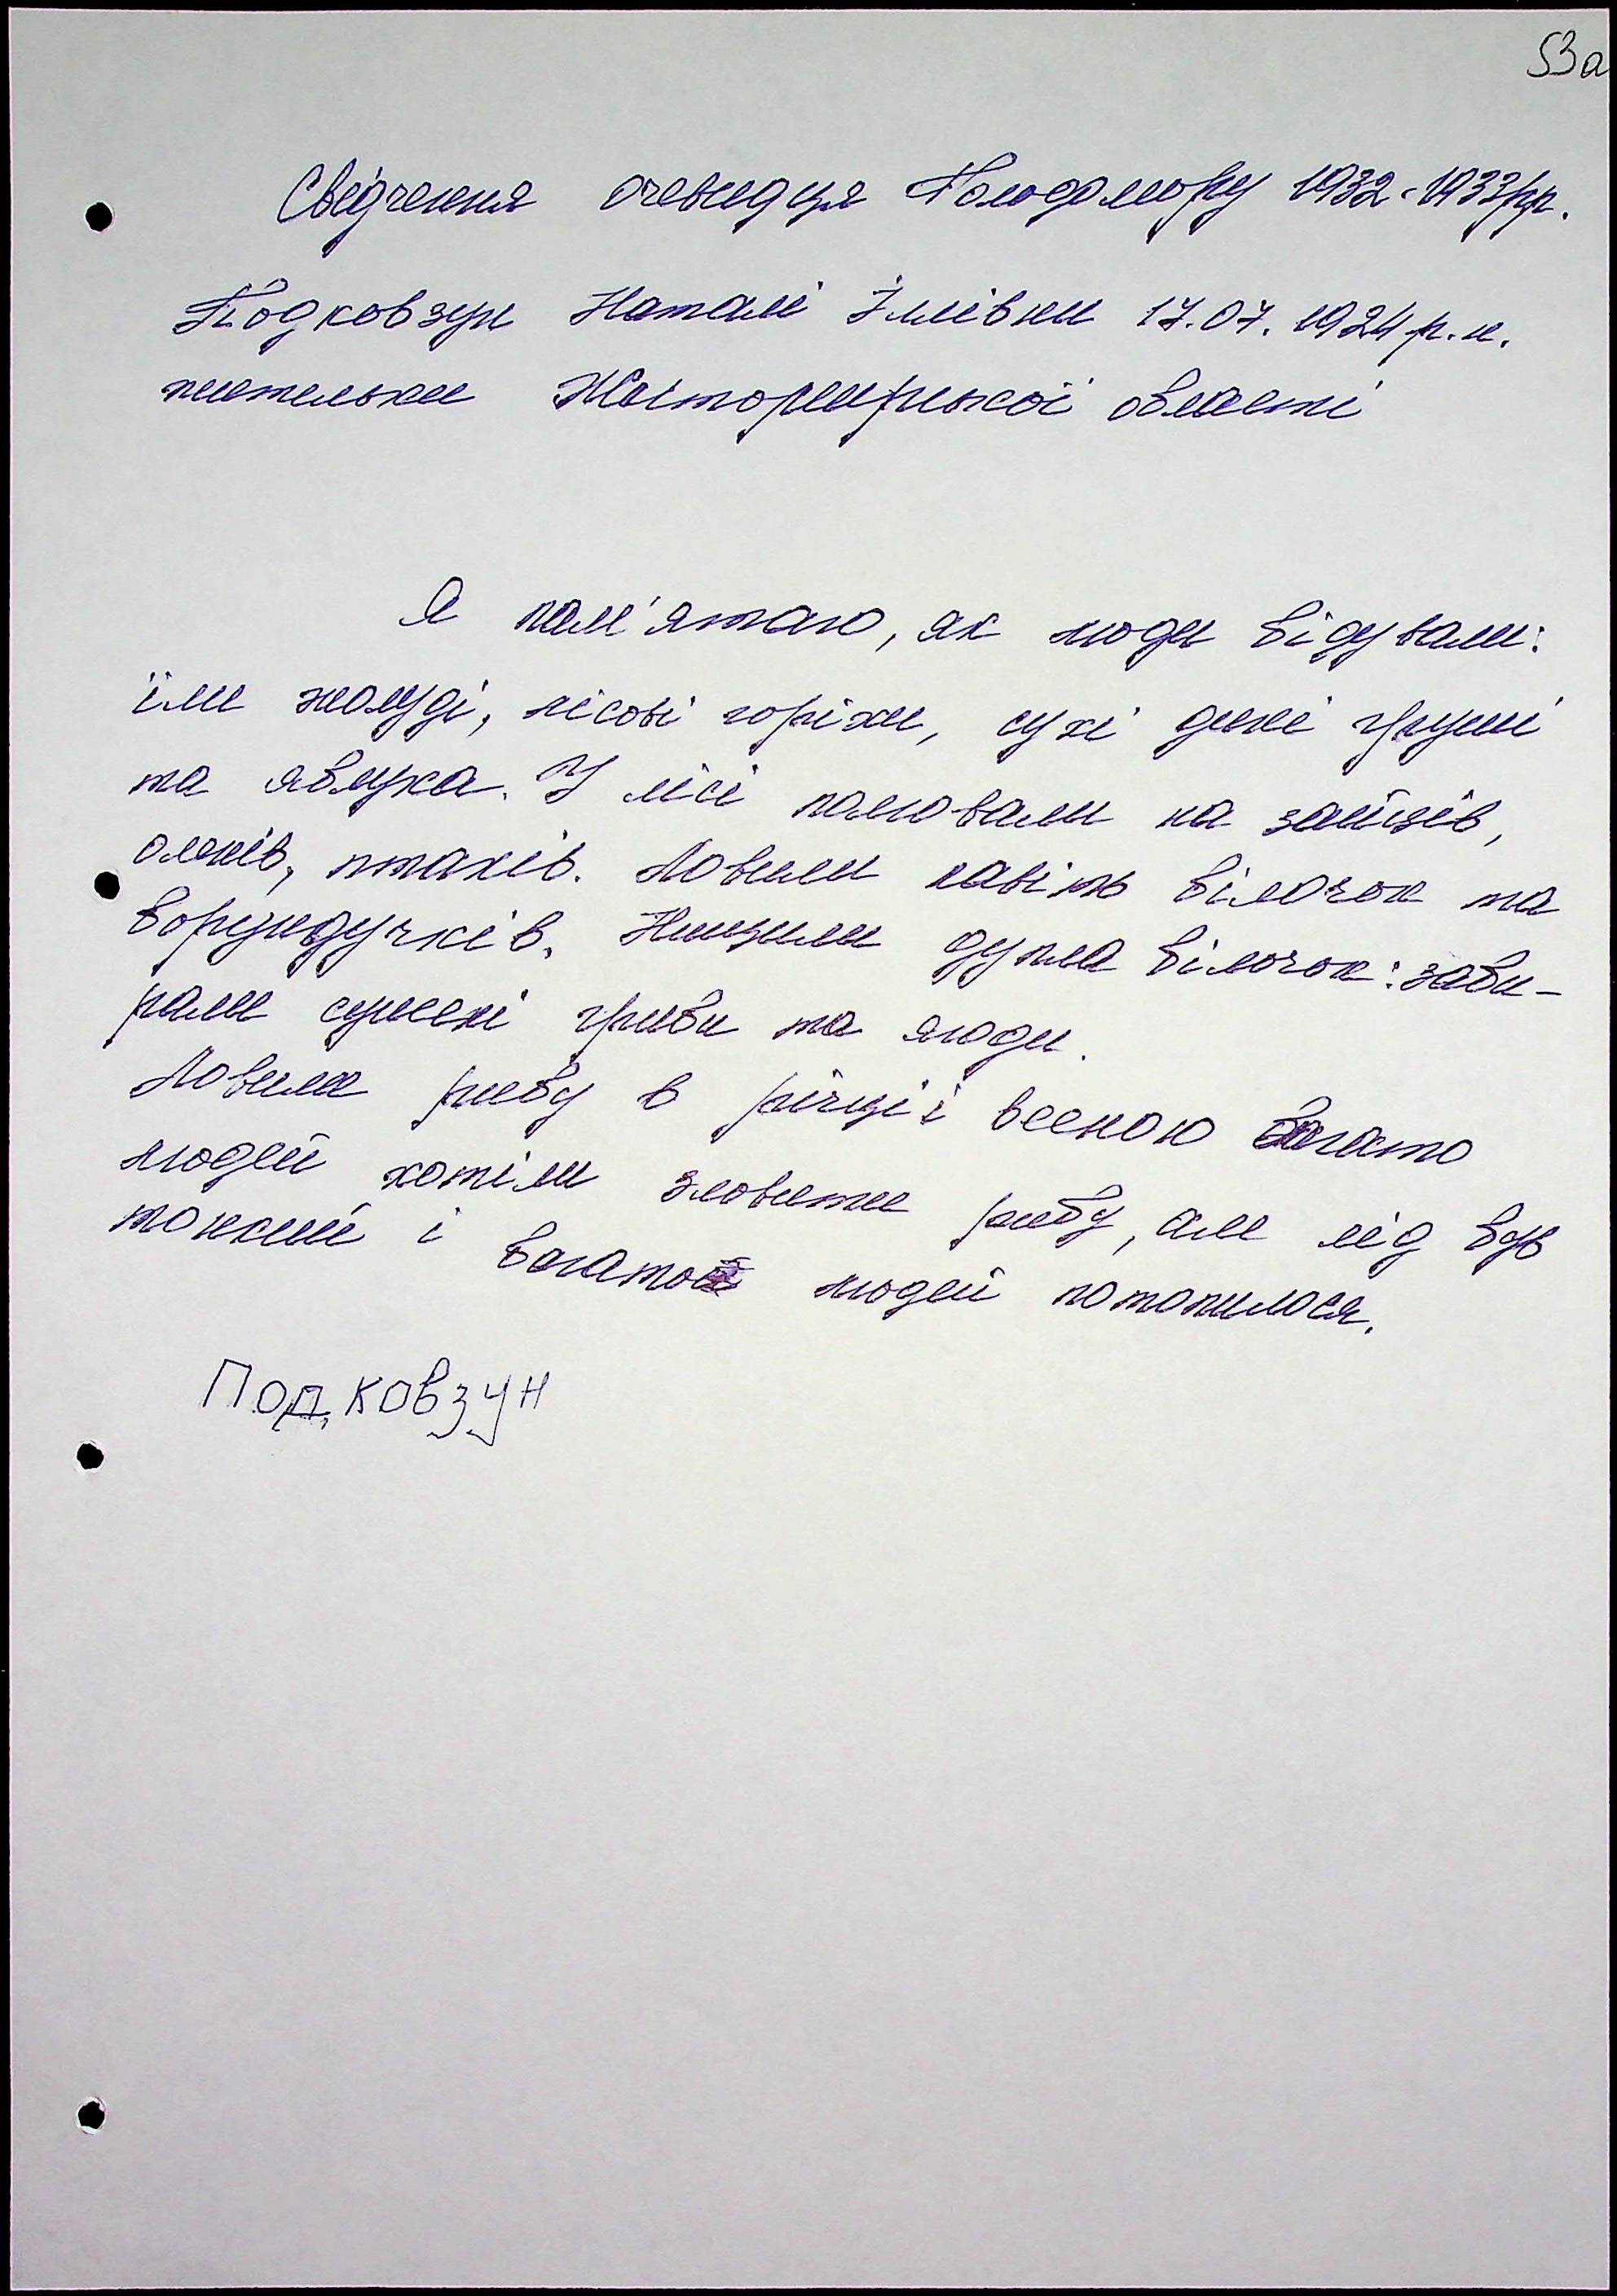 53а
Свідчення очевидця Голодомору 1932-1933рр.
Подковзун Наталі Іллівни 17.07.1924 р.н.
жительки Житомирської області
Я пам'ятаю, як люди бідували:
їли жолуді, лісові горіхи, сухі дикі груші
та яблука. У лісі полювали на зайців,
оленів, птахів. Ловили навіть білочок та
борундучків. Нищили дупла білочок: заби-
рали сушені гриби та ягоди.
Ловили рибу в річці і весною багато
людей хотіли зловити рибу, але лід був
тонкий і багато людей потопилося.
Подковзун